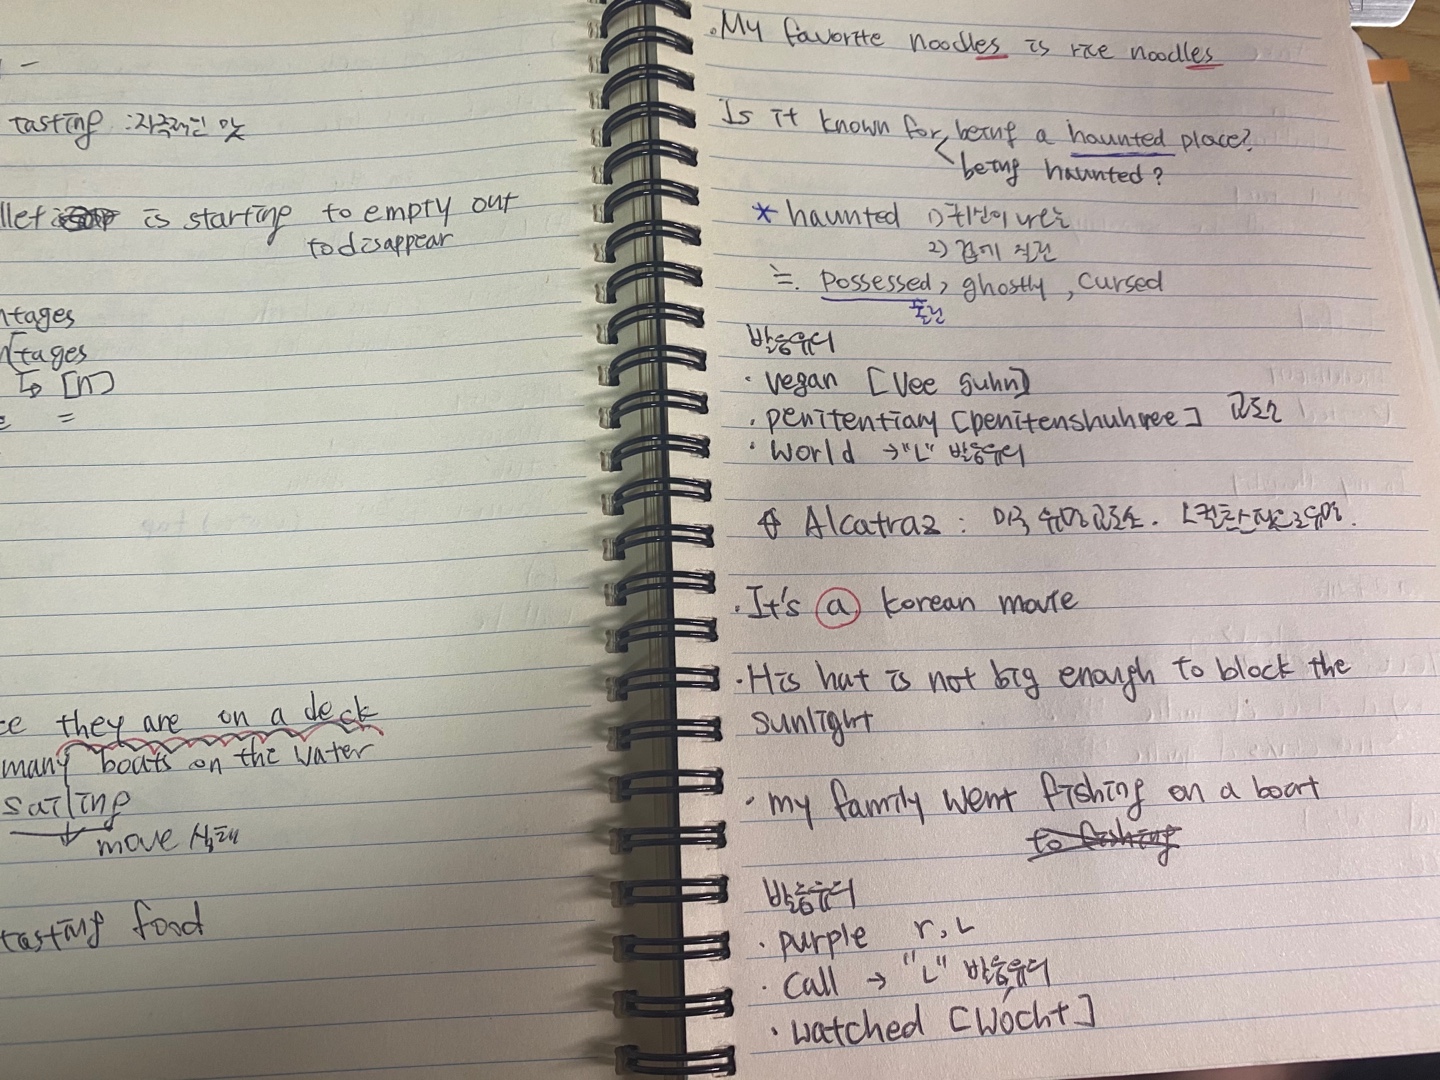 tasting : 자극적인 맛
is starting to empty out
to disappear
ntages
tages
↳ [n]
=
they are on a deck
many boats on the water
sailing
move 상태
tasting food
. My favorite noodles is rice noodles
Is it known for being a haunted place?
being haunted?
* haunted 1) 귀신이 나오는
2) 겁에 질린
≒. possessed, ghostly, cursed
홀린
발음유의
· vegan [Vee guhn]
· penitentiary [penitenshuhree] 교도소
· world → "L" 발음유의
Alcatraz : 미국 유명 교도소.
· It's a korean movie
· His hat is not big enough to block the
sunlight
· my family went fishing on a boat
to fishing
발음유의
· purple r, L
· call → "L" 발음유의
· watched [Wócht]